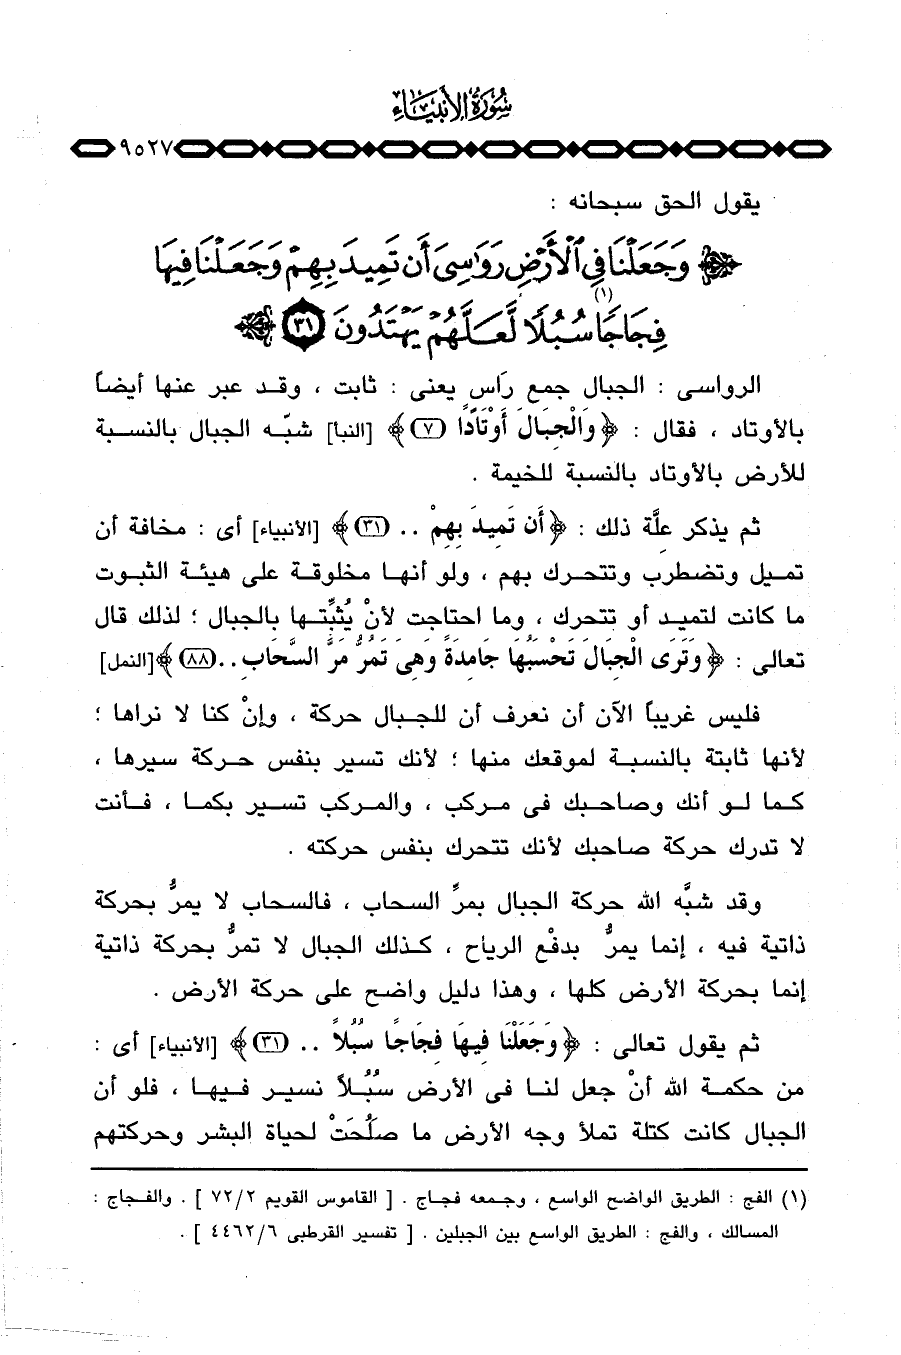 سورة الأنبياء
٩٥٢٧
يقول الحق سبحانه :
﴿ وَجَعَلْنَا فِي ٱلْأَرْضِ رَوَٰسِيَ أَن تَمِيدَ بِهِمْ وَجَعَلْنَا فِيهَا
فِجَاجًا(١) سُبُلًا لَّعَلَّهُمْ يَهْتَدُونَ ٣١ ﴾
الرواسى : الجبال جمع رَاس يعنى : ثابت ، وقد عبر عنها أيضاً
بالأوتاد ، فقال : ﴿ وَالْجِبَالَ أَوْتَادًا (٧) ﴾ [النبأ] شبّه الجبال بالنسبة
للأرض بالأوتاد بالنسبة للخيمة .
ثم يذكر علَّة ذلك : ﴿ أَن تَمِيدَ بِهِمْ .. (٣١) ﴾ [الأنبياء] أى : مخافة أن
تميل وتضطرب وتتحرك بهم ، ولو أنها مخلوقة على هيئة الثبوت
ما كانت لتميد أو تتحرك ، وما احتاجت لأنْ يُثبِّتها بالجبال ؛ لذلك قال
تعالى : ﴿ وَتَرَى الْجِبَالَ تَحْسَبُهَا جَامِدَةً وَهِىَ تَمُرُّ مَرَّ السَّحَابِ ..(٨٨) ﴾[النمل]
فليس غريباً الآن أن نعرف أن للجبال حركة ، وإنْ كنا لا نراها ؛
لأنها ثابتة بالنسبة لموقعك منها ؛ لأنك تسير بنفس حركة سيرها ،
كما لو أنك وصاحبك فى مركب ، والمركب تسير بكما ، فأنت
لا تدرك حركة صاحبك لأنك تتحرك بنفس حركته .
وقد شبَّه الله حركة الجبال بمرِّ السحاب ، فالسحاب لا يمرُّ بحركة
ذاتية فيه ، إنما يمرُّ بدفْع الرياح ، كذلك الجبال لا تمرُّ بحركة ذاتية
إنما بحركة الأرض كلها ، وهذا دليل واضح على حركة الأرض .
ثم يقول تعالى : ﴿ وَجَعَلْنَا فِيهَا فِجَاجًا سُبُلاً .. (٣١) ﴾ [الأنبياء] أى :
من حكمة الله أنْ جعل لنا فى الأرض سُبُلاً نسير فيها ، فلو أن
الجبال كانت كتلة تملأ وجه الأرض ما صَلُحَتْ لحياة البشر وحركتهم
(١) الفج : الطريق الواضح الواسع ، وجمعه فجاج . [ القاموس القويم ٧٢/٢ ] . والفجاج :
المسالك ، والفج : الطريق الواسع بين الجبلين . [ تفسير القرطبى ٤٤٦٢/٦ ] .